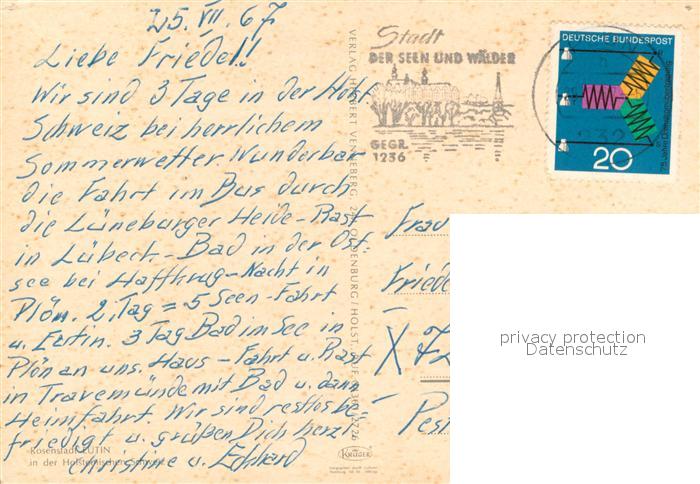 25. VII. 67
Liebe Friedel!!
Wir sind 3 Tage in der Holst.
Schweiz bei herrlichem
Sommerwetter. Wunderbar
die Fahrt im Bus durch
die Lüneburger Heide-Rast
in Lübeck-Bad in der Ost-
see bei Haffkrug-Nacht in
Plön. 2. Tag = 5 Seen-Fahrt
u. Eutin. 3 Tag Bad im See in
Plön an uns. Haus-Fahrt u. Rast
in Travemünde mit Bad u. dann
Heimfahrt. Wir sind restlos be-
friedigt u. grüßen Dich herzl.
Christine u. Eckhard
Rosenstadt EUTIN
in der Holsteinischen Schweiz
VERLAG HERBERT VENNEBERG, OLDENBURG/HOLST.
KRÜGER
Stadt
DER SEEN UND WÄLDER
GEGR.
1236
DEUTSCHE BUNDESPOST
20
Frau
Friede
X 72
Pes
privacy protection
Datenschutz